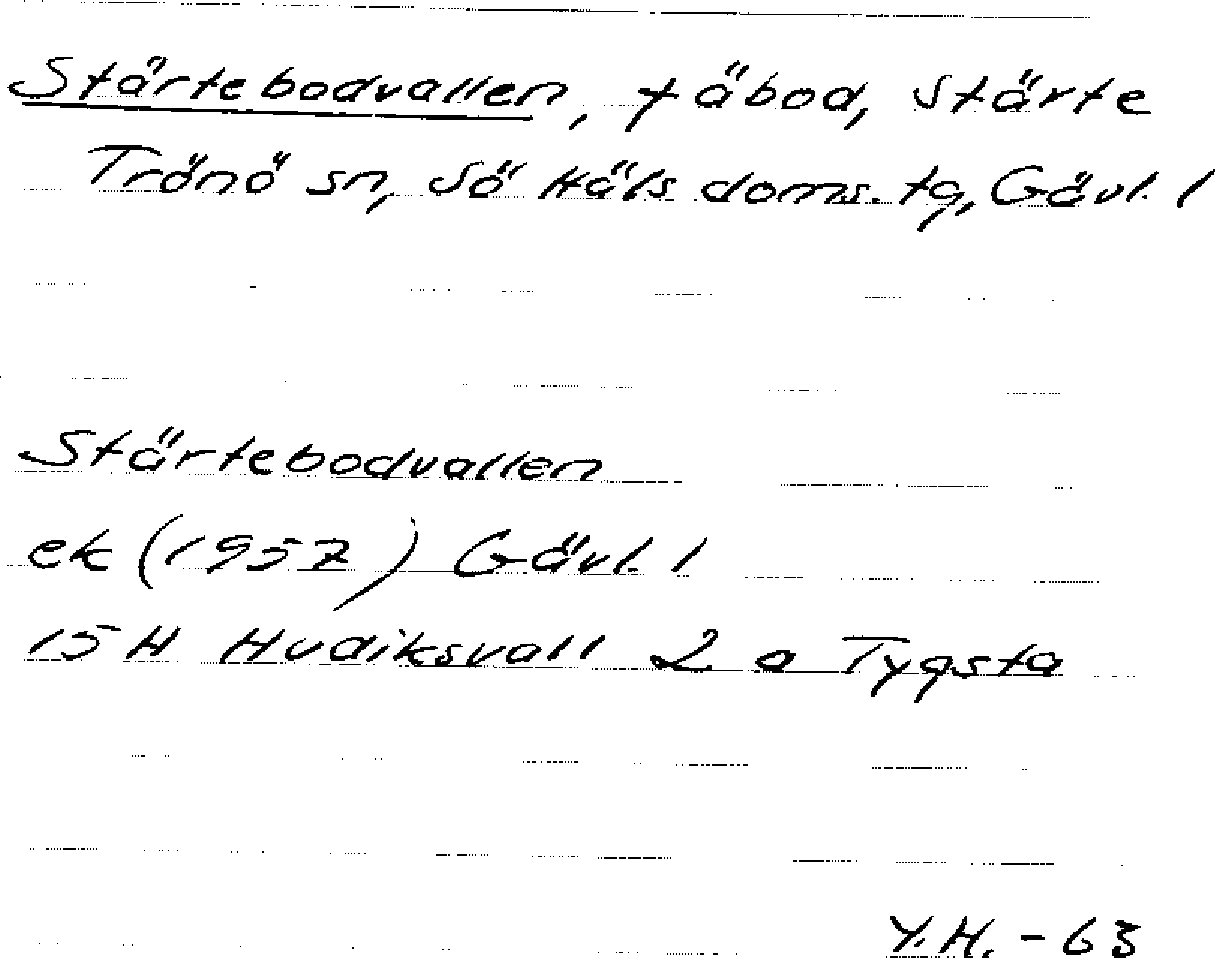 Stärtebodvallen, fäbod, Stärte
Trönö sn, Sö Häls doms. tg, Gävl. l
Stärtebodvallen
ek (1957) Gävl. l
15 H Hudiksvall 2 a Tygsta
Y.H. - 63